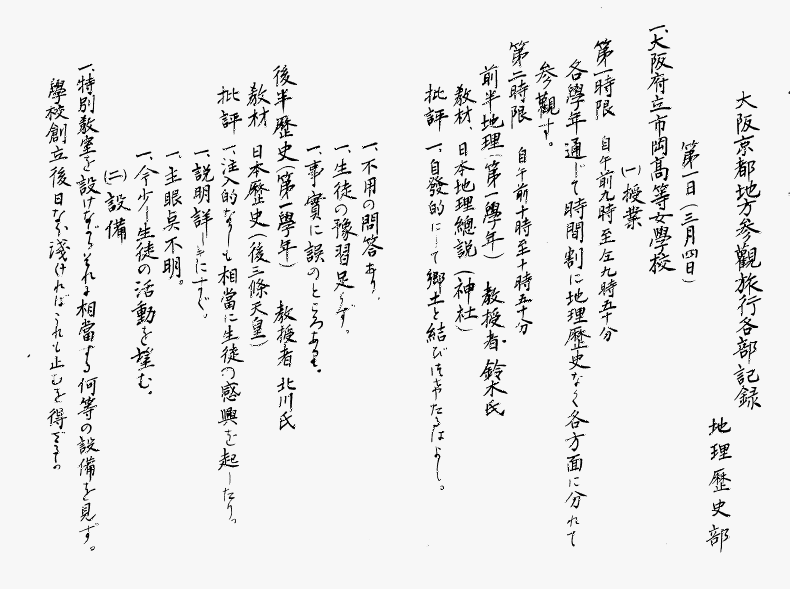 大阪京都地方参觀旅行各部記録
地理歷史部
第一日(三月四日)
一、大阪府立市岡高等女學校
㈠授業
第一時限 自午前九時至仝九時五十分
各學年通じて時間割に地理歷史なく各方面に分れて
参觀す。
第二時限 自午前十時至十時五十分
前半地理(第一學年) 教授者 鈴木氏
教材、日本地理總説(神社)
批評 一、自發的にして郷土と結びつきたるはよし。
一、不用の問答あり、
一、生徒の豫習足らず。
一、事實に誤のところある。
後半歷史(第一學年) 教授者 北川氏
教材 日本歷史(後三條天皇)
批評 一、注入的なるも相當に生徒の感興を起したり。
一、説明詳しきにすぐ。
一、主眼点不明。
一、今少し生徒の活動を望む。
㈡設備
一、特別教室を設けながらそれに相當する何等の設備を見ず。
學校創立後日なほ淺ければこれも止むを得ざるか